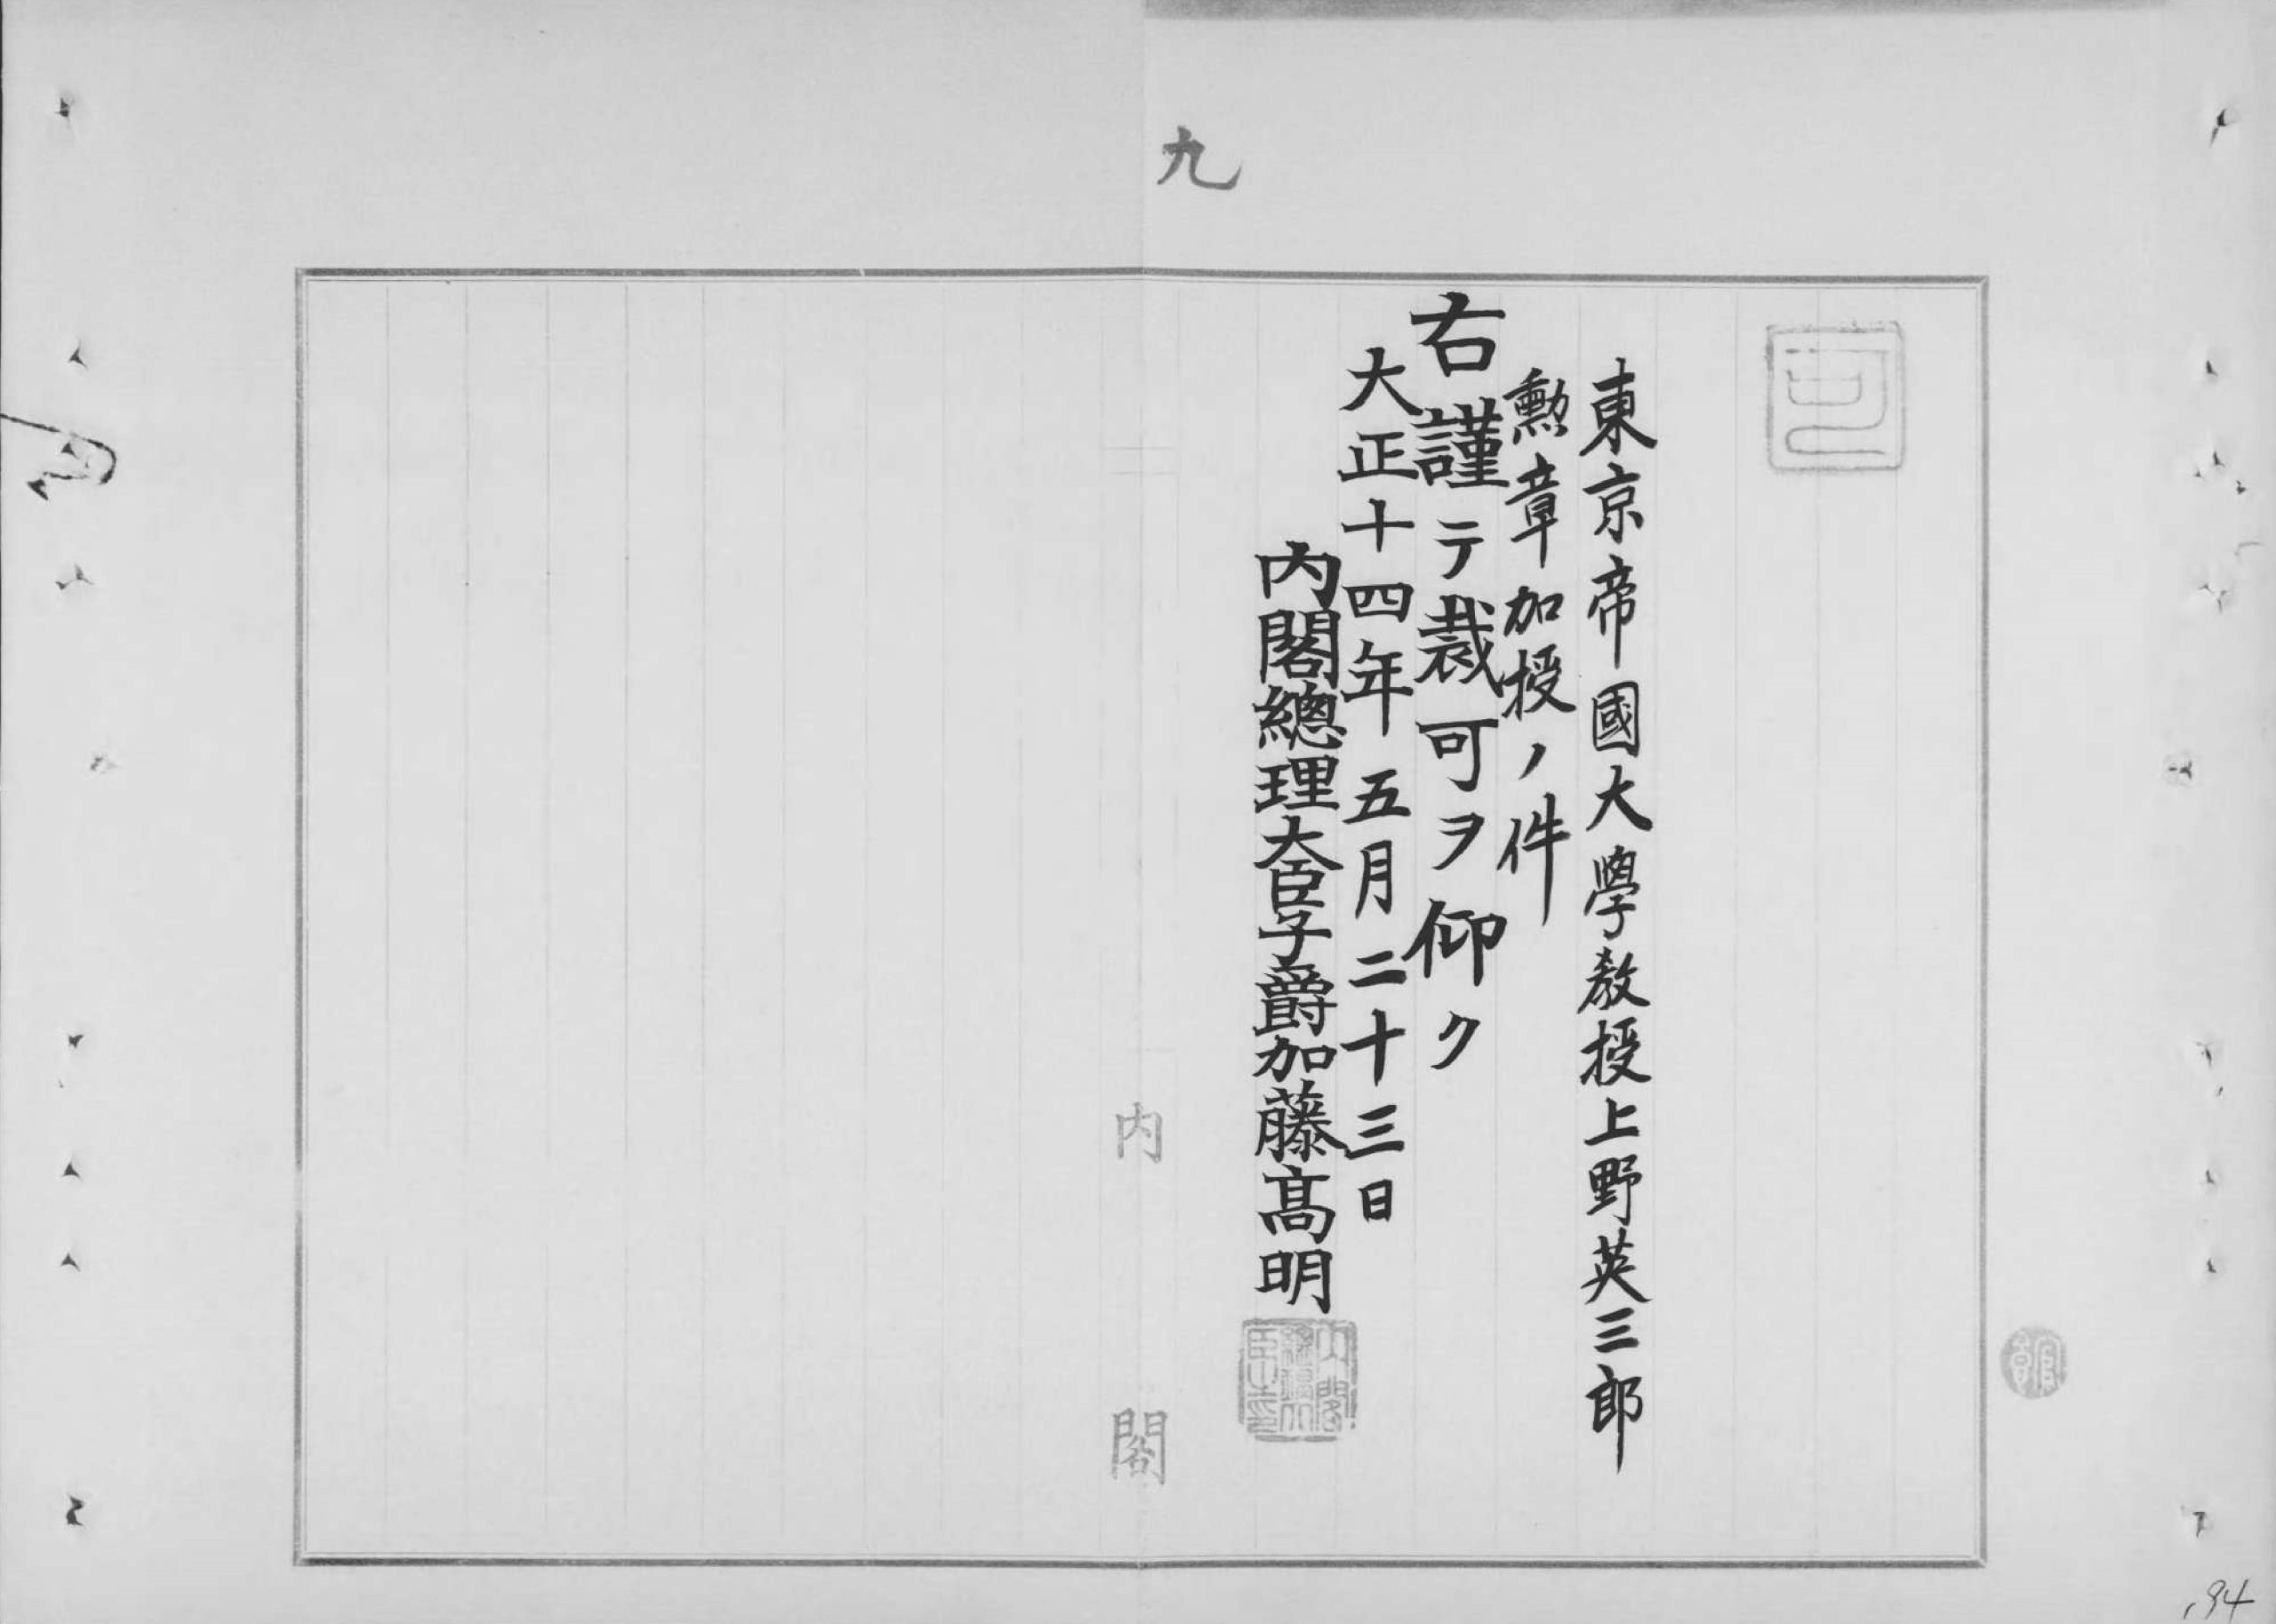 九
可
東京帝國大學教授上野英三郎
勲章加授ノ件
右謹テ裁可ヲ仰ク
大正十四年五月二十三日
内閣總理大臣子爵加藤高明
内閣總理大臣之印
内閣